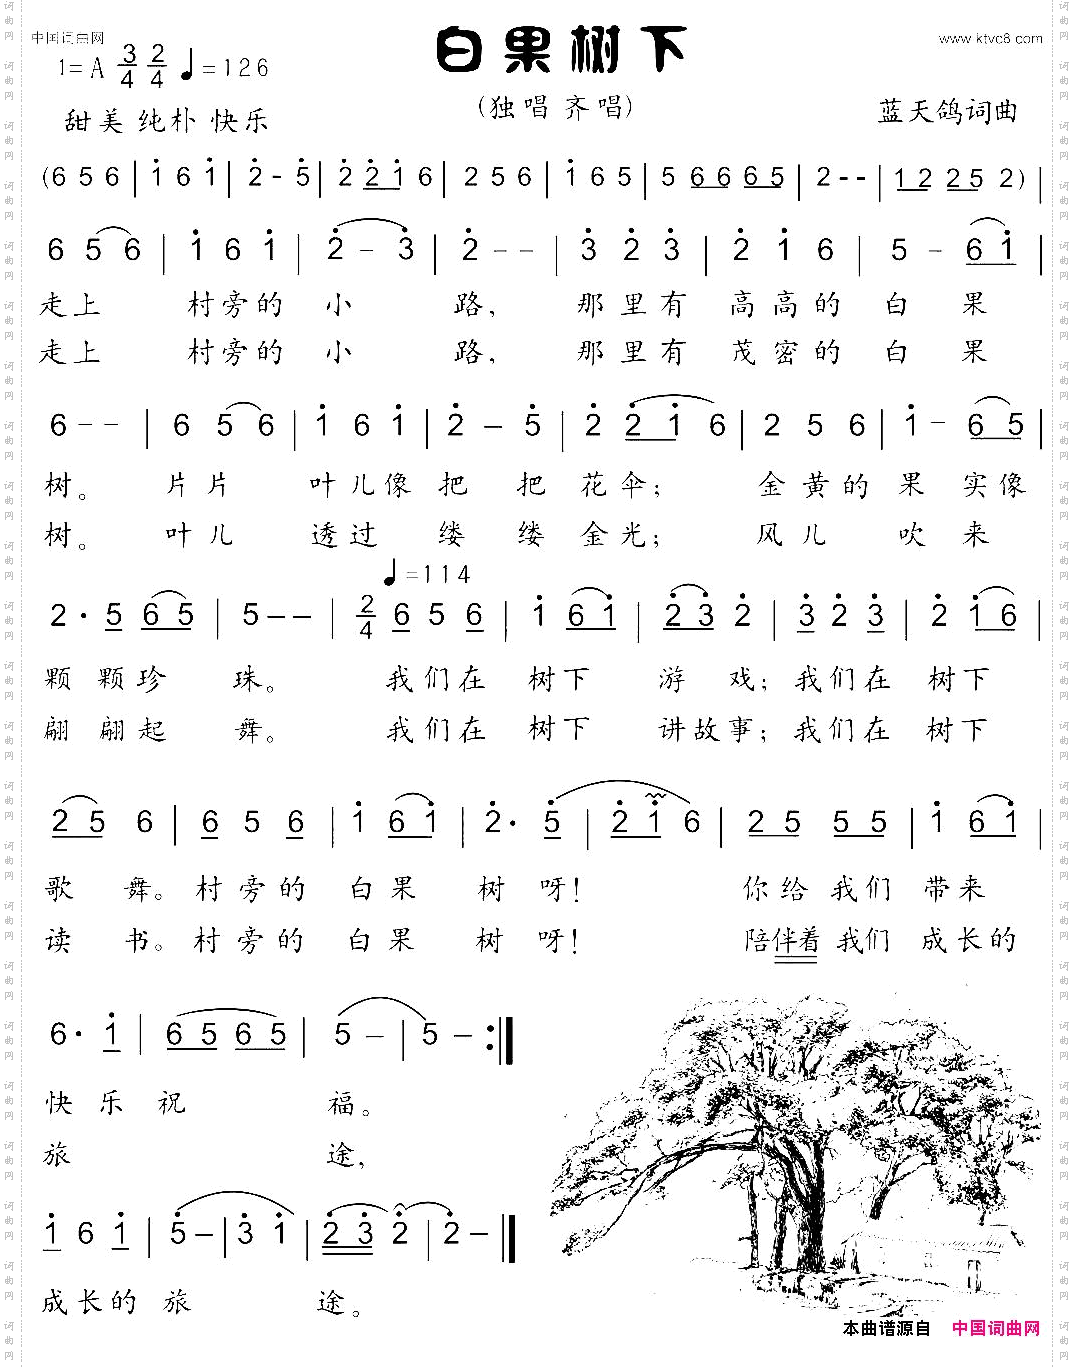 中国词曲网
www.ktvc8.com
白果树下
1=A 3/4 2/4 ♩=126
(独唱 齐唱)
甜美 纯朴 快乐
蓝天鸽词曲
(6 5 6 | 1 6 1 | 2 - 5 | 2 2 1 6 | 2 5 6 | 1 6 5 | 5 6 6 6 5 | 2 - - | 1 2 2 5 2) |
6 5 6 | 1 6 1 | 2 - 3 | 2 - - | 3 2 3 | 2 1 6 | 5 - 6 1 |
走上 村旁的 小 路, 那里有 高高的 白 果
走上 村旁的 小 路, 那里有 茂密的 白 果
6 - - | 6 5 6 | 1 6 1 | 2 - 5 | 2 2 1 6 | 2 5 6 | 1 - 6 5 |
树。 片片 叶儿像 把 把 花伞; 金黄的 果 实像
树。 叶儿 透过 缕 缕 金光; 风儿 吹来
♩=114
2 · 5 6 5 | 5 - - | 2/4 6 5 6 | 1 6 1 | 2 3 2 | 3 2 3 | 2 1 6 |
颗 颗珍 珠。 我们在 树下 游 戏; 我们在 树下
翩 翩起 舞。 我们在 树下 讲故事; 我们在 树下
2 5 6 | 6 5 6 | 1 6 1 | 2 · 5 | 2 1 6 | 2 5 5 5 | 1 6 1 |
歌 舞。村旁的 白果 树 呀! 你给 我们 带来
读 书。村旁的 白果 树 呀! 陪伴着 我们 成长的
6 · 1 | 6 5 6 5 | 5 - | 5 - :|
快 乐 祝 福。
旅 途,
1 6 1 | 5 - | 3 1 | 2 3 2 | 2 - ‖
成长的 旅 途。
本曲谱源自 中国词曲网